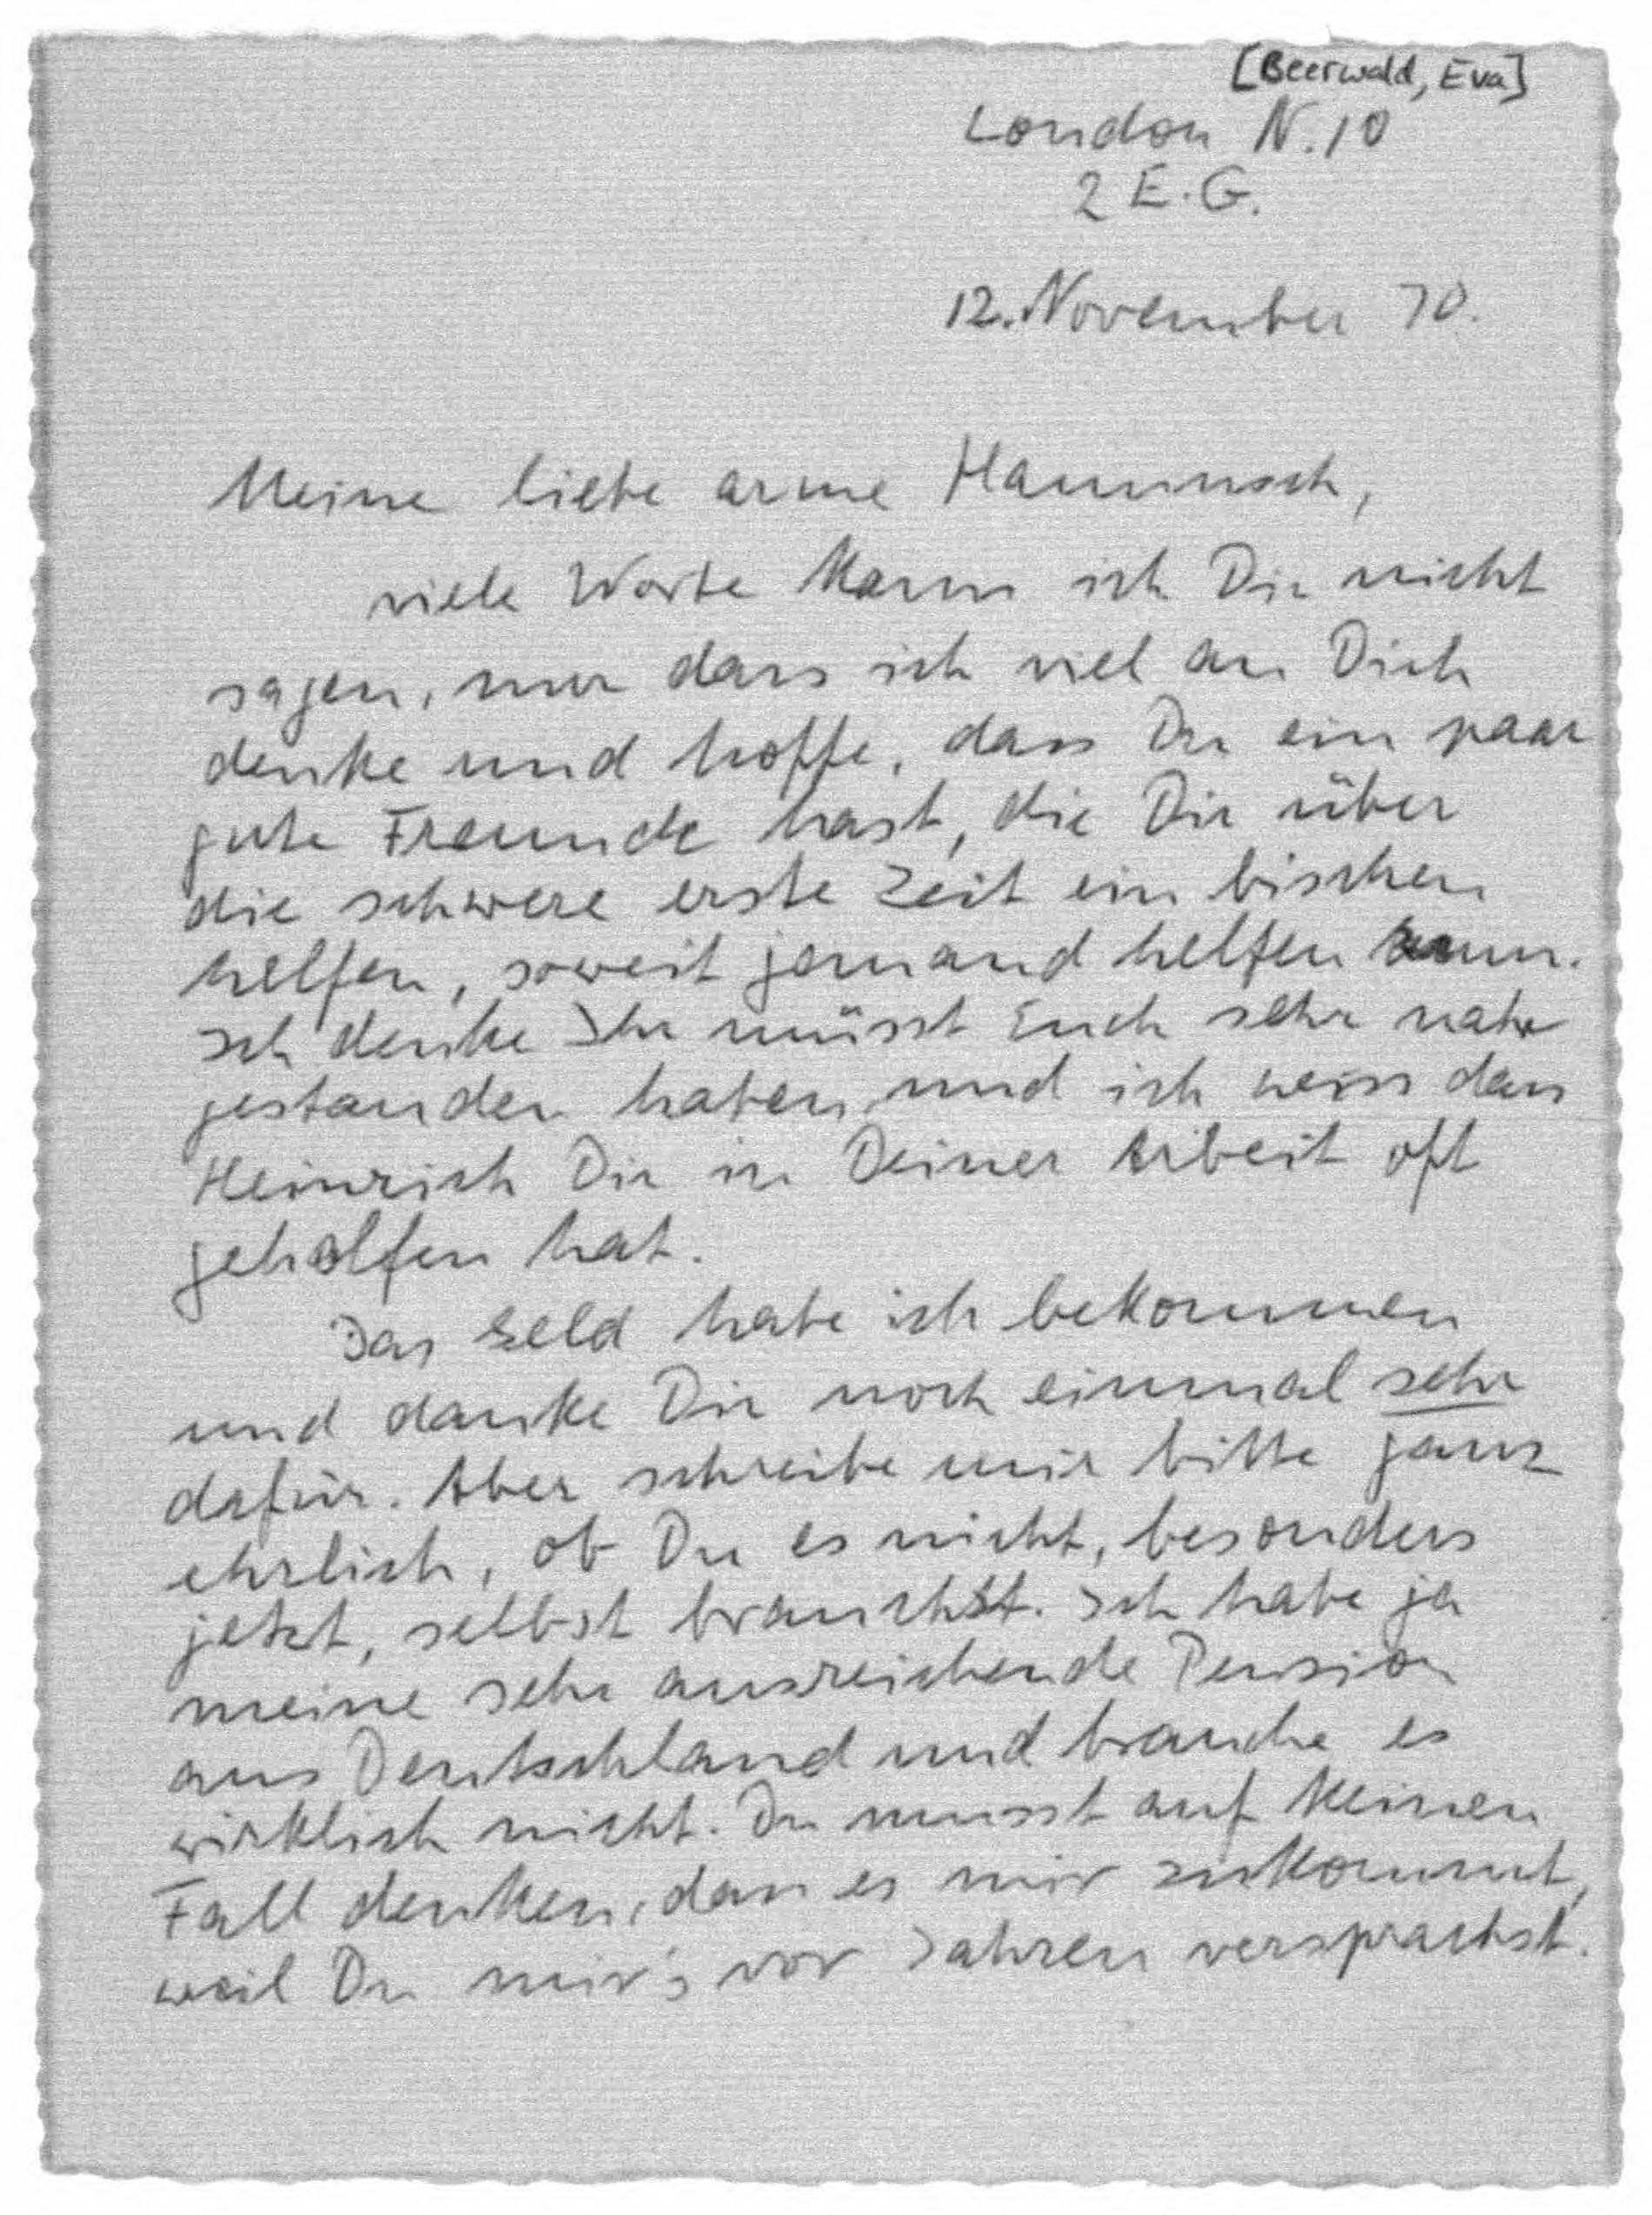 [Beerwald, Eva]
London N.10
2 E.G.
12. November 70.
Meine liebe arme Hannusch,
viele Worte kann ich Dir nicht
sagen, nur dass ich viel an Dich
denke und hoffe, dass Du ein paar
gute Freunde hast, die Dir über
die schwere erste Zeit ein bischen
helfen, soweit jemand helfen kann.
Ich denke Ihr müsst Euch sehr nahe
gestanden haben und ich weiss dass
Heinrich Dir in Deiner Arbeit oft
geholfen hat.
Das Geld habe ich bekommen
und danke Dir noch einmal sehr
dafür. Aber schreibe mir bitte ganz
ehrlich, ob Du es nicht, besonders
jetzt, selbst brauchst. Ich habe ja
meine sehr ausreichende Pension
aus Deutschland und brauche es
wirklich nicht. Du musst auf keinen
Fall denken, dass es mir zukommt,
weil Du mir's vor Jahren versprachst.